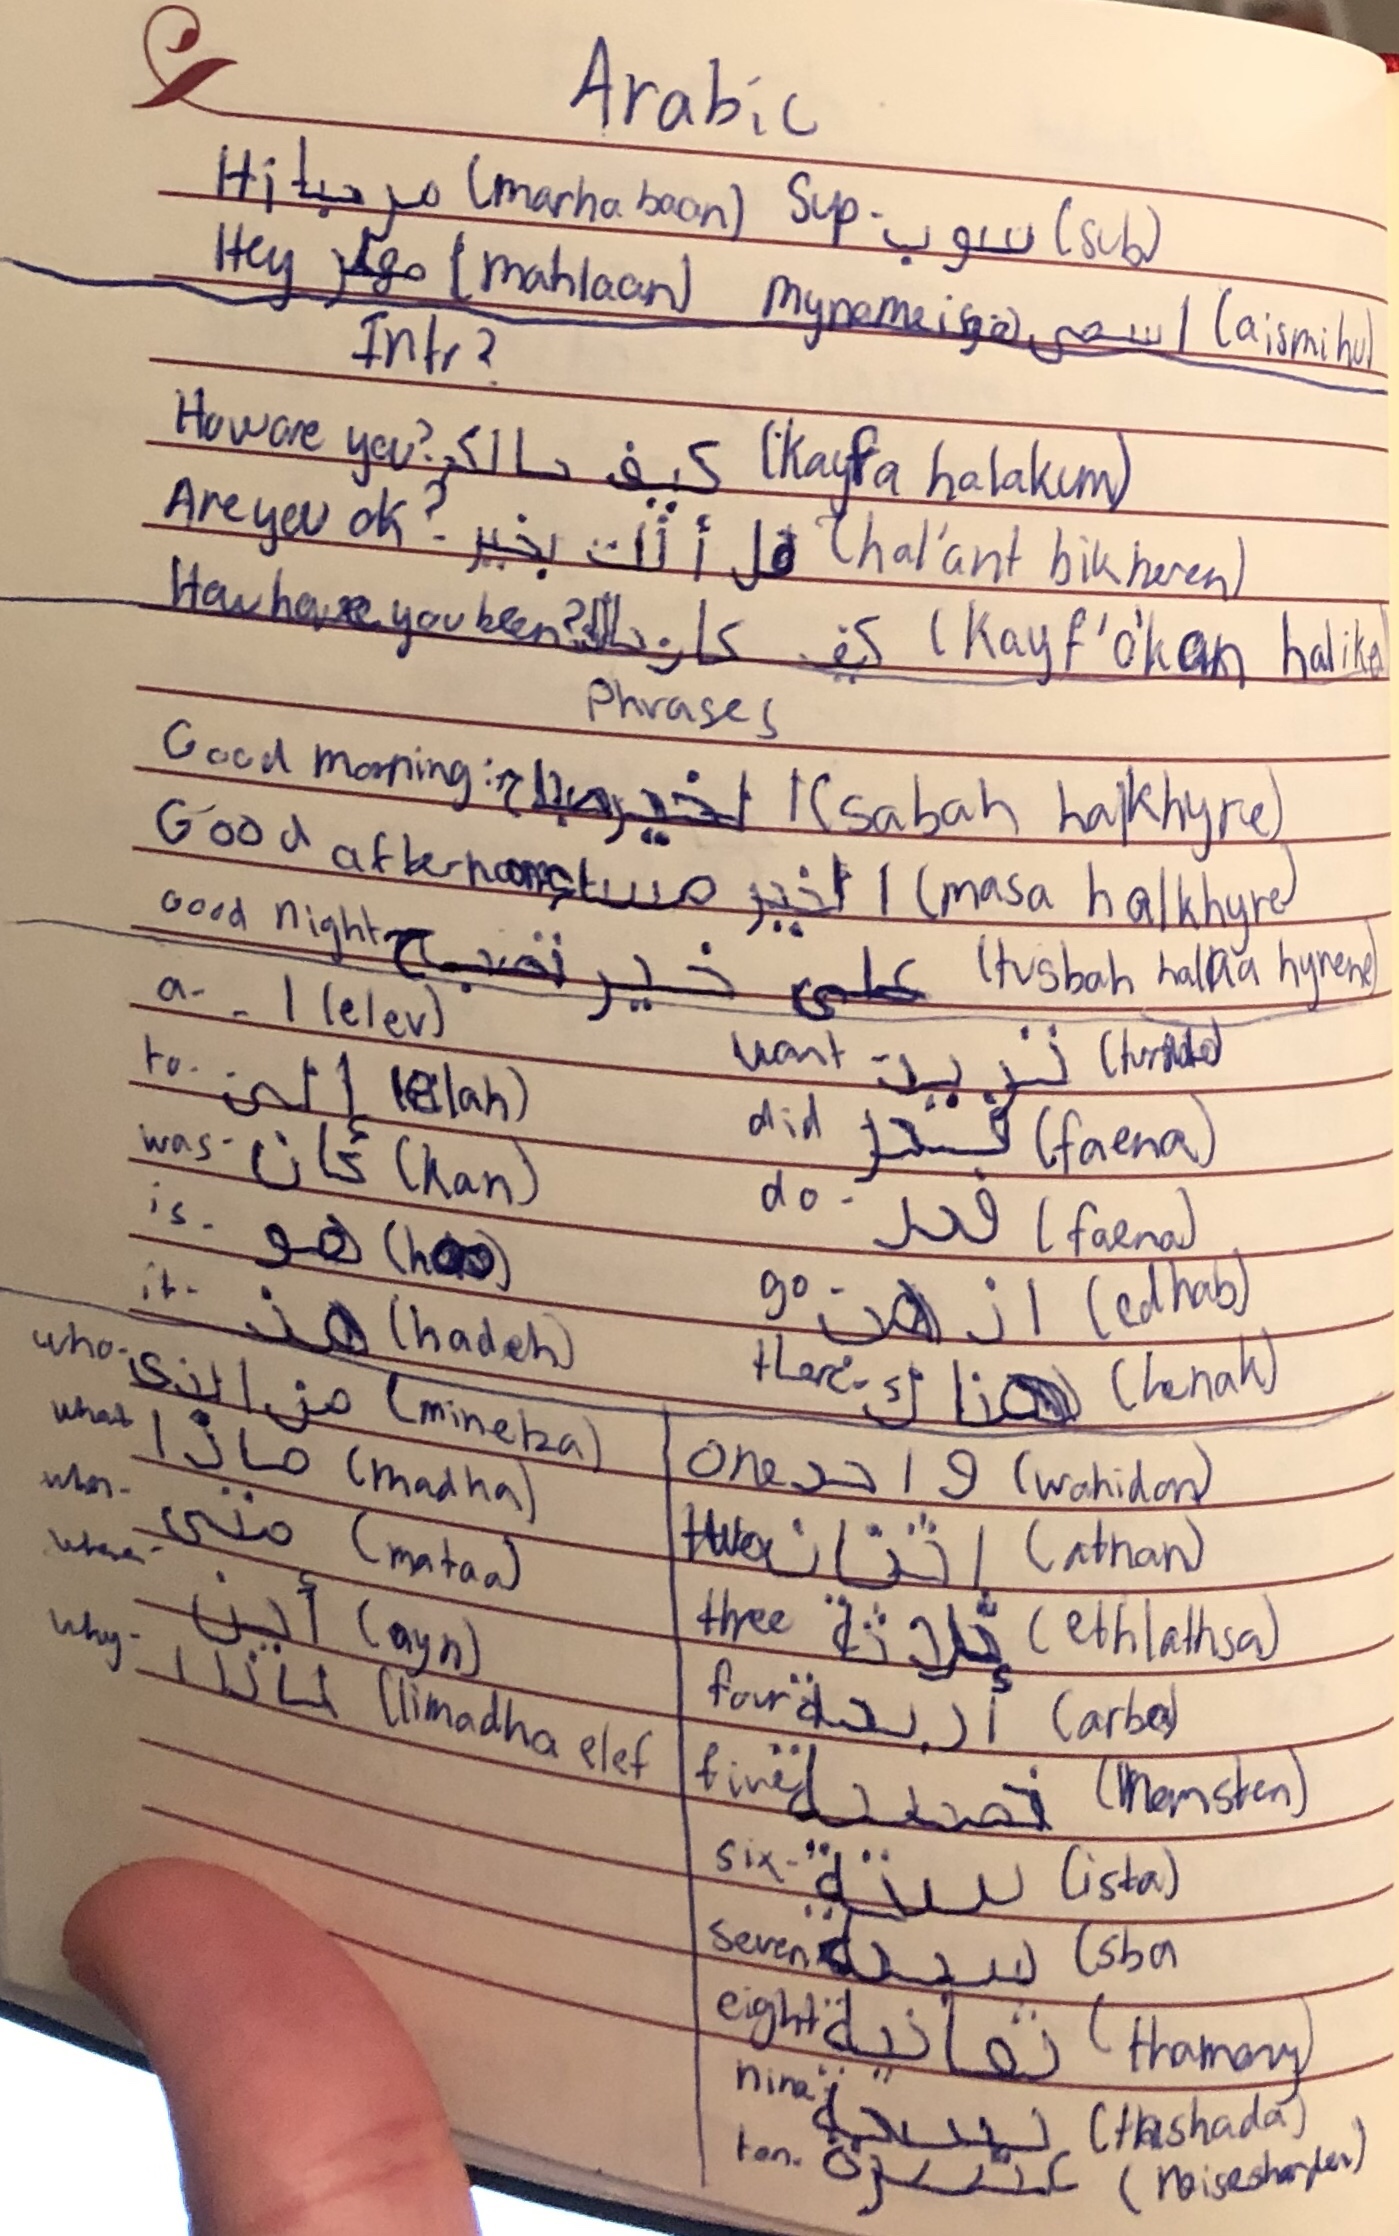 Arabic
Hi مرحبا (marhabaan) Sup- سوب (sub)
Hey مهلا (mahlaan) my name is اسمي (aismihu)
Intr?
How are you? كيف حالك (Kayfa halakum)
Are you ok? - هل أنت بخير (hal'ant bikheren)
How have you been? كيف كان حالك (Kayf'okan halika)
Phrases
Good morning: صباح الخير (sabah halkhyre)
Good afternoon مساء الخير (masa halkhyre)
Good night تصبح على خير (tusbah halaa hyrene)
a- - ا (elev)
to- إلى (elah)
was- كان (kan)
is- هو
it- (hadeh)
want - تريد
did (faena)
do - (faena)
go - (edhab)
there- هناك (henak)
who- من الذي (minetza)
what ماذا (madha)
when- متى (mataa)
where- أين (ayn)
why- لماذا (limadha elef
one واحد (wahidan)
two اثنان (athan)
three ثلاثة (ethlathsa)
four أربعة (arba)
five خمسة (khamsten)
six- ستة (ista)
seven سبعة (sba
eight ثمانية (thamany)
nine تسعة (tashada)
ten- عشرة